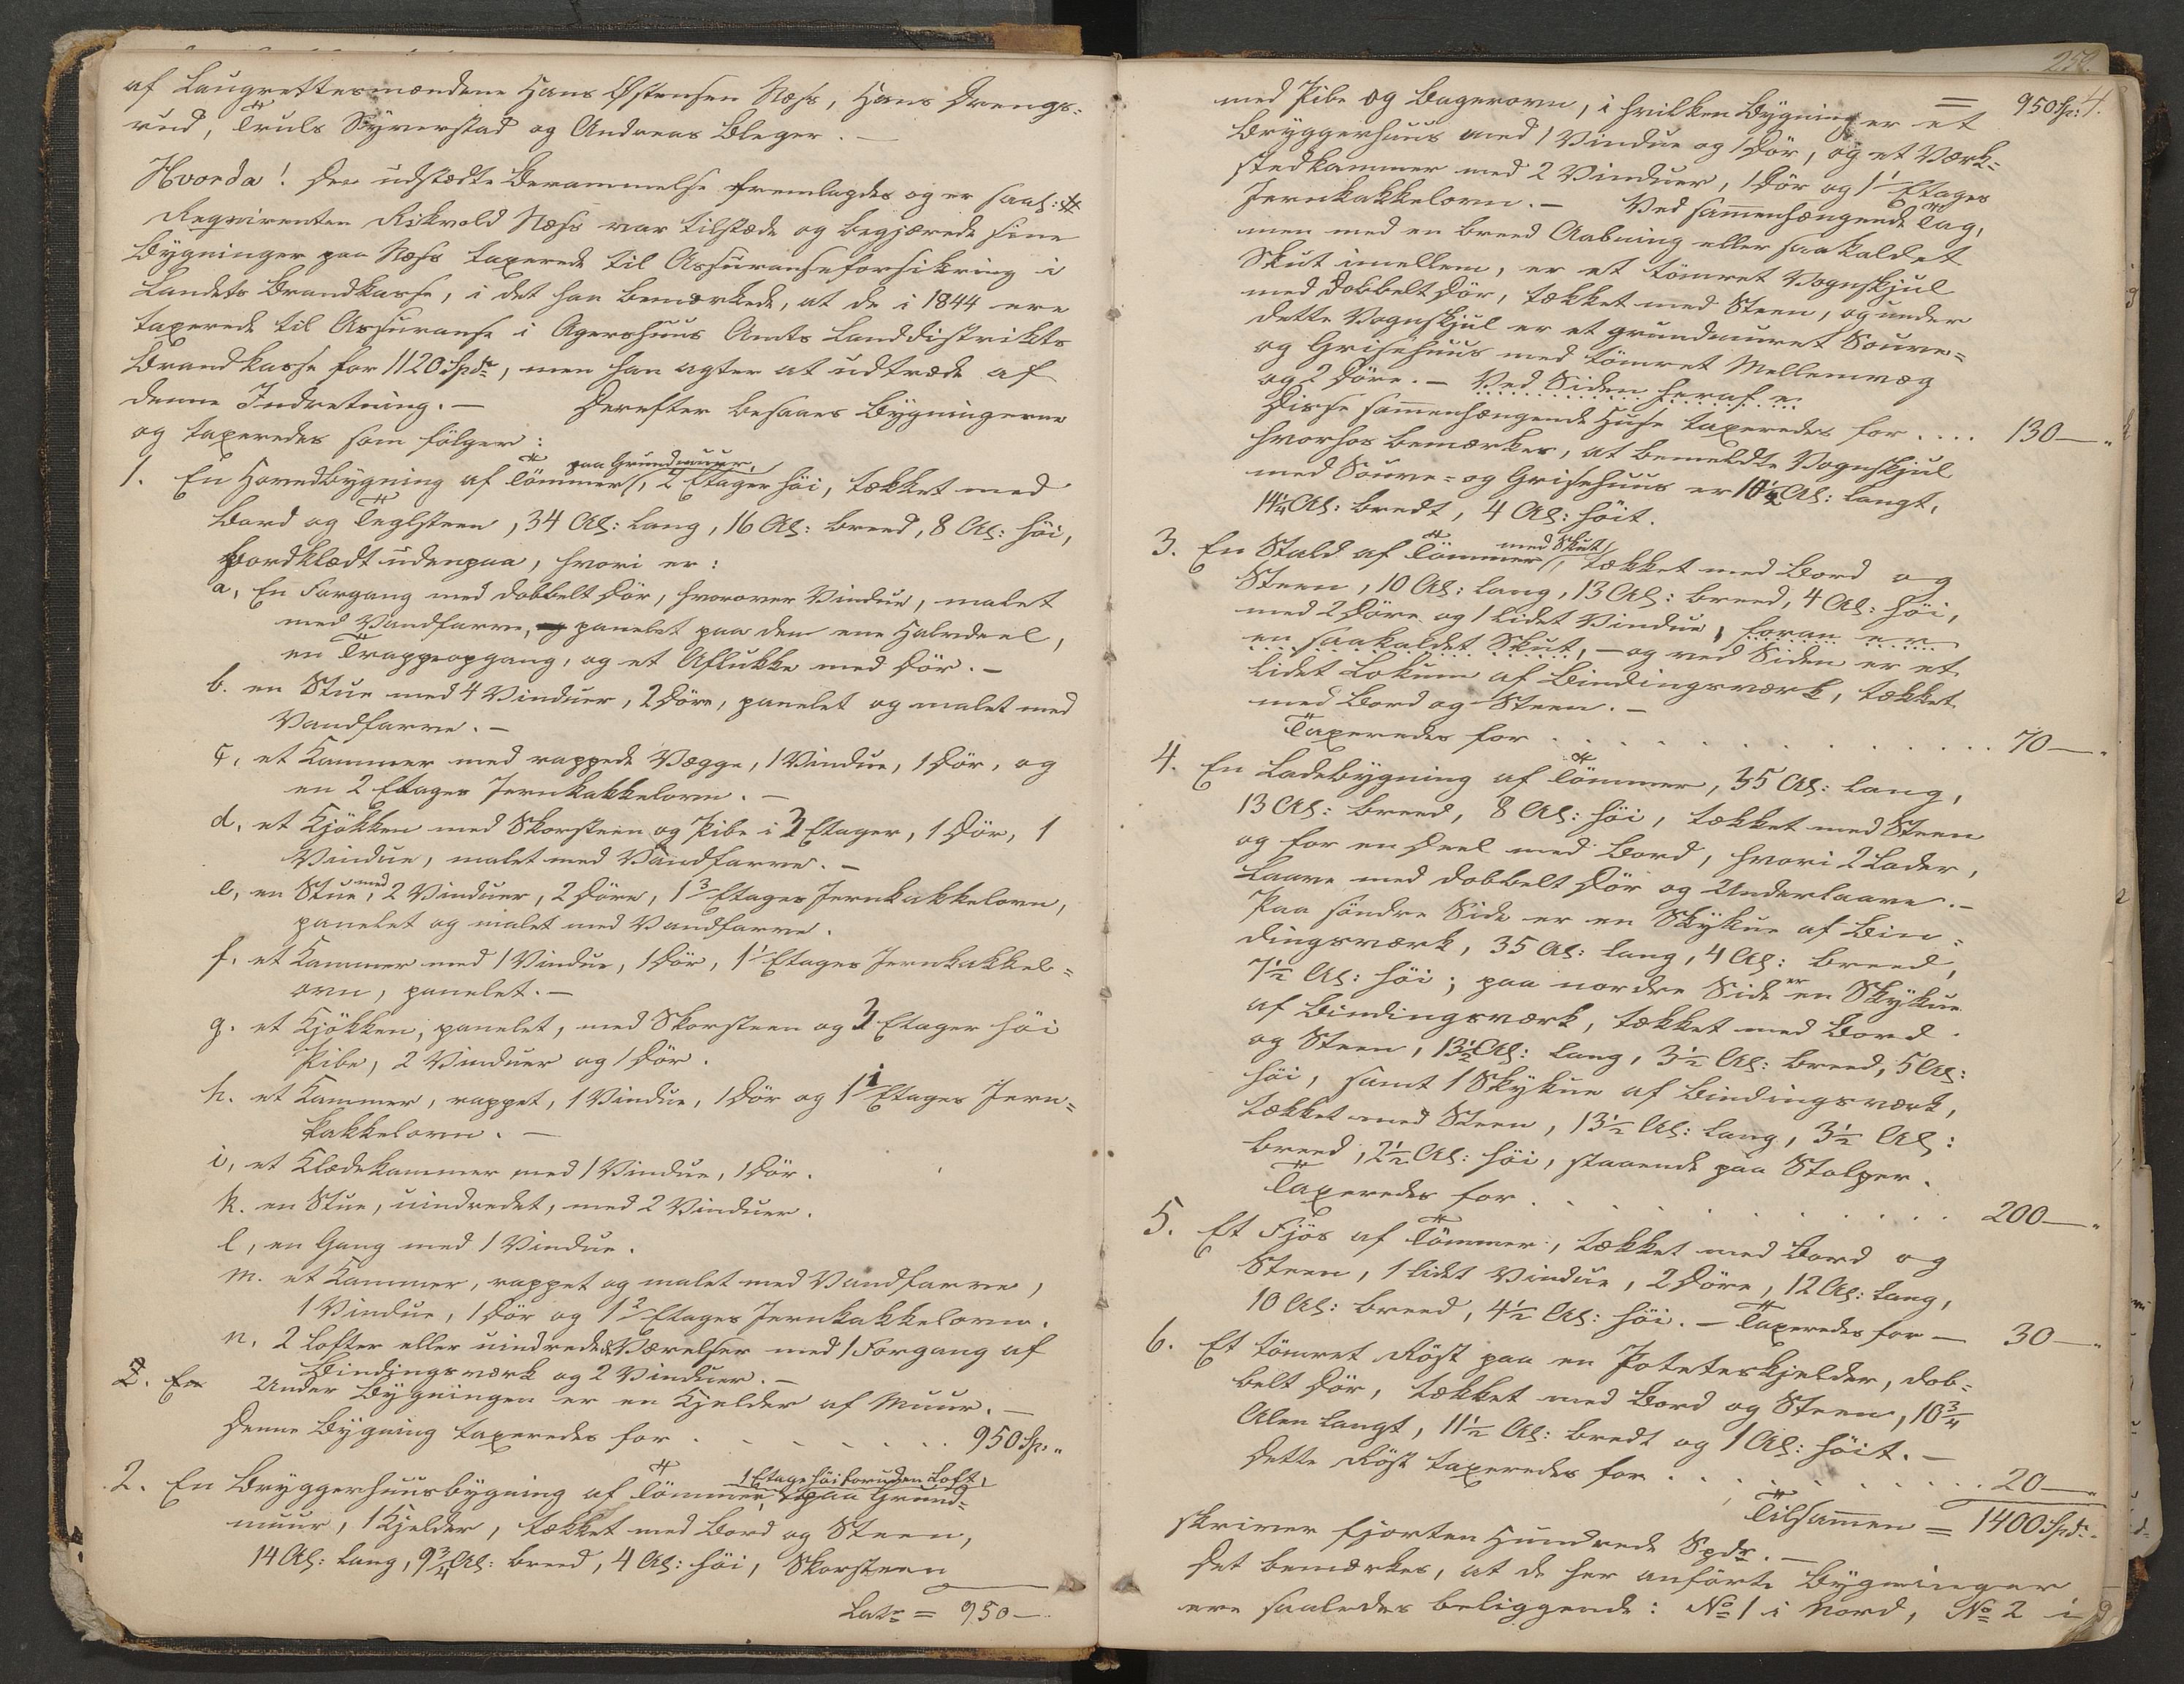 af Laugrettesmændene Hans Østensen Næss, Hans Drengs-
rud, Truls Syverstad og Andreas Bleger. —
Hvorda! Den udstædte Berammelse fremlagdes og er saal:
Reqvirenten Rikvold Næss var tilstæde og begjærede sine
Bygninger paa Næss taxerede til Assuranseforsikring i
Landets Brandkasse, i det han bemærkede, at de i 1844 ere
taxerede til Assuranse i Agershuus Amts Landdistrikts
Brandkasse for 1120 Spdr, men han agter at udtræde af
denne Indretning. — Derefter besaaes Bygningerne
og taxeredes som følger:
1. En Hovedbygning af Tømmer paa Grundmuur, 2 Etager høi, tækket med
Bord og Teglsteen, 34 Al: lang, 16 Al: breed, 8 Al: høi,
bordklædt udenpaa, hvori er:
a, En Forgang med dobbelt Dør, hvorover Vindue, malet
med Vandfarve, panelet paa den ene Halvdeel,
en Trappeopgang, og et Aflukke med Dør. —
b. en Stue med 4 Vinduer, 2 Døre, panelet og malet med
Vandfarve. —
c, et Kammer med rappede Vægge, 1 Vindue, 1 Dør, og
en 2 Etages Jernkakkelovn. —
d, et Kjøkken med Skorsteen og Pibe i 3 Etager, 1 Dør, 1
Vindue, malet med Vandfarve. —
e, en Stue med 2 Vinduer, 2 Døre, 1 3 Etages Jernkakkelovn,
panelet og malet med Vandfarve.
f. et Kammer med 1 Vindue, 1 Dør, 1 1 Etages Jernkakkel-
ovn, panelet. —
g. et Kjøkken, panelet, med Skorsteen og 3 Etager høi
Pibe, 2 Vinduer og 1 Dør.
h. et Kammer, rappet, 1 Vindue, 1 Dør og 1 1 Etages Jern-
kakkelovn. —
i, et Klædekammer med 1 Vindue, 1 Dør.
k. en Stue, uindredet, med 2 Vinduer.
l, en Gang med 1 Vindue.
m. et Kammer, rappet og malet med Vandfarve,
1 Vindue, 1 Dør og 1 2 Etages Jernkakkelovn.
n. 2 Lofter eller uindredede Værelser med 1 Forgang af
Bindingsværk og 2 Vinduer. —
2. En Under Bygningen er en Kjelder af Muur. —
Denne Bygning taxeredes for . . . . . . . 950 Sp. "
2. En Bryggerhuusbygning af Tømmer, 1 Etage høi foruden Loft, paa Grund-
muur, 1 Kjelder, tækket med Bord og Steen,
14 Al: lang, 9 3/4 Al: breed, 4 Al: høi, Skorsteen
Latr = 950 —
252.
= 950 Sp:
med Pibe og Bagerovn, i hvilken Bygning er et
Bryggerhuus med 1 Vindue og 1 Dør, og et Værk-
stedkammer med 2 Vinduer, 1 Dør og 1 1 Etages
Jernkakkelovn. — Ved sammenhængende Tag,
men med en breed Aabning eller saakaldet
Skut imellem, er et tømret Vognskjul
med dobbelt Dør, tækket med Steen, og under
dette Vognskjul er et grundmuret Souve-
og Grisehuus med tømret Mellemvæg
og 2 Døre. — Ved Siden heraf er
Disse sammenhængende Huse taxeredes for . . . . 130 — "
hvorhos bemærkes, at bemeldte Vognskjul
med Souve- og Grisehuus er 10 1/2 Al: langt,
14 1/4 Al: bredt, 4 Al: høit.
3. En Stald af Tømmer med Skut, tækket med Bord og
Steen, 10 Al: lang, 13 Al: breed, 4 Al: høi,
med 2 Døre og 1 lidet Vindue, foran er
en saakaldet Skut, — og ved Siden er et
lidet Lokum af Bindingsværk, tækket
med Bord og Steen. —
Taxeredes for . . . . . . . . . . . 70 — "
4. En Ladebygning af Tømmer, 35 Al: lang,
13 Al: breed, 8 Al: høi, tækket med Steen
og for en Deel med Bord, hvori 2 Lader,
Laave med dobbelt Dør og Underlaave. —
Paa søndre Side er en Skykue af Bin-
dingsværk, 35 Al: lang, 4 Al: breed,
7 1/2 Al: høi; paa nordre Side er en Skykue
af Bindingsværk, tækket med Bord
og Steen, 13 1/2 Al: lang, 3 1/2 Al: breed, 5 Al:
høi, samt 1 Skykue af Bindingsværk,
tækket med Steen, 13 1/2 Al: lang, 3 1/2 Al:
breed, 2 1/2 Al: høi, staaende paa Stolper.
Taxeredes for . . . . . . . . . . . 200 — "
5. Et Fjøs af Tømmer, tækket med Bord og
Steen, 1 lidet Vindue, 2 Døre, 12 Al: lang,
10 Al: breed, 4 1/2 Al: høi. — Taxeredes for — 30 — "
6. Et tømret Røst paa en Poteteskjelder, dob-
belt Dør, tækket med Bord og Steen, 10 3/4
Alen langt, 11 1/2 Al: bredt og 1 Al: høit. —
Dette Røst taxeredes for . . . . . . . . . 20 — "
Tilsammen = 1400 Spd:
skriver fjorten Hundrede Spdr. —
Det bemærkes, at de her anførte Bygninger
ere saaledes beliggende: No 1 i Nord, No 2 i